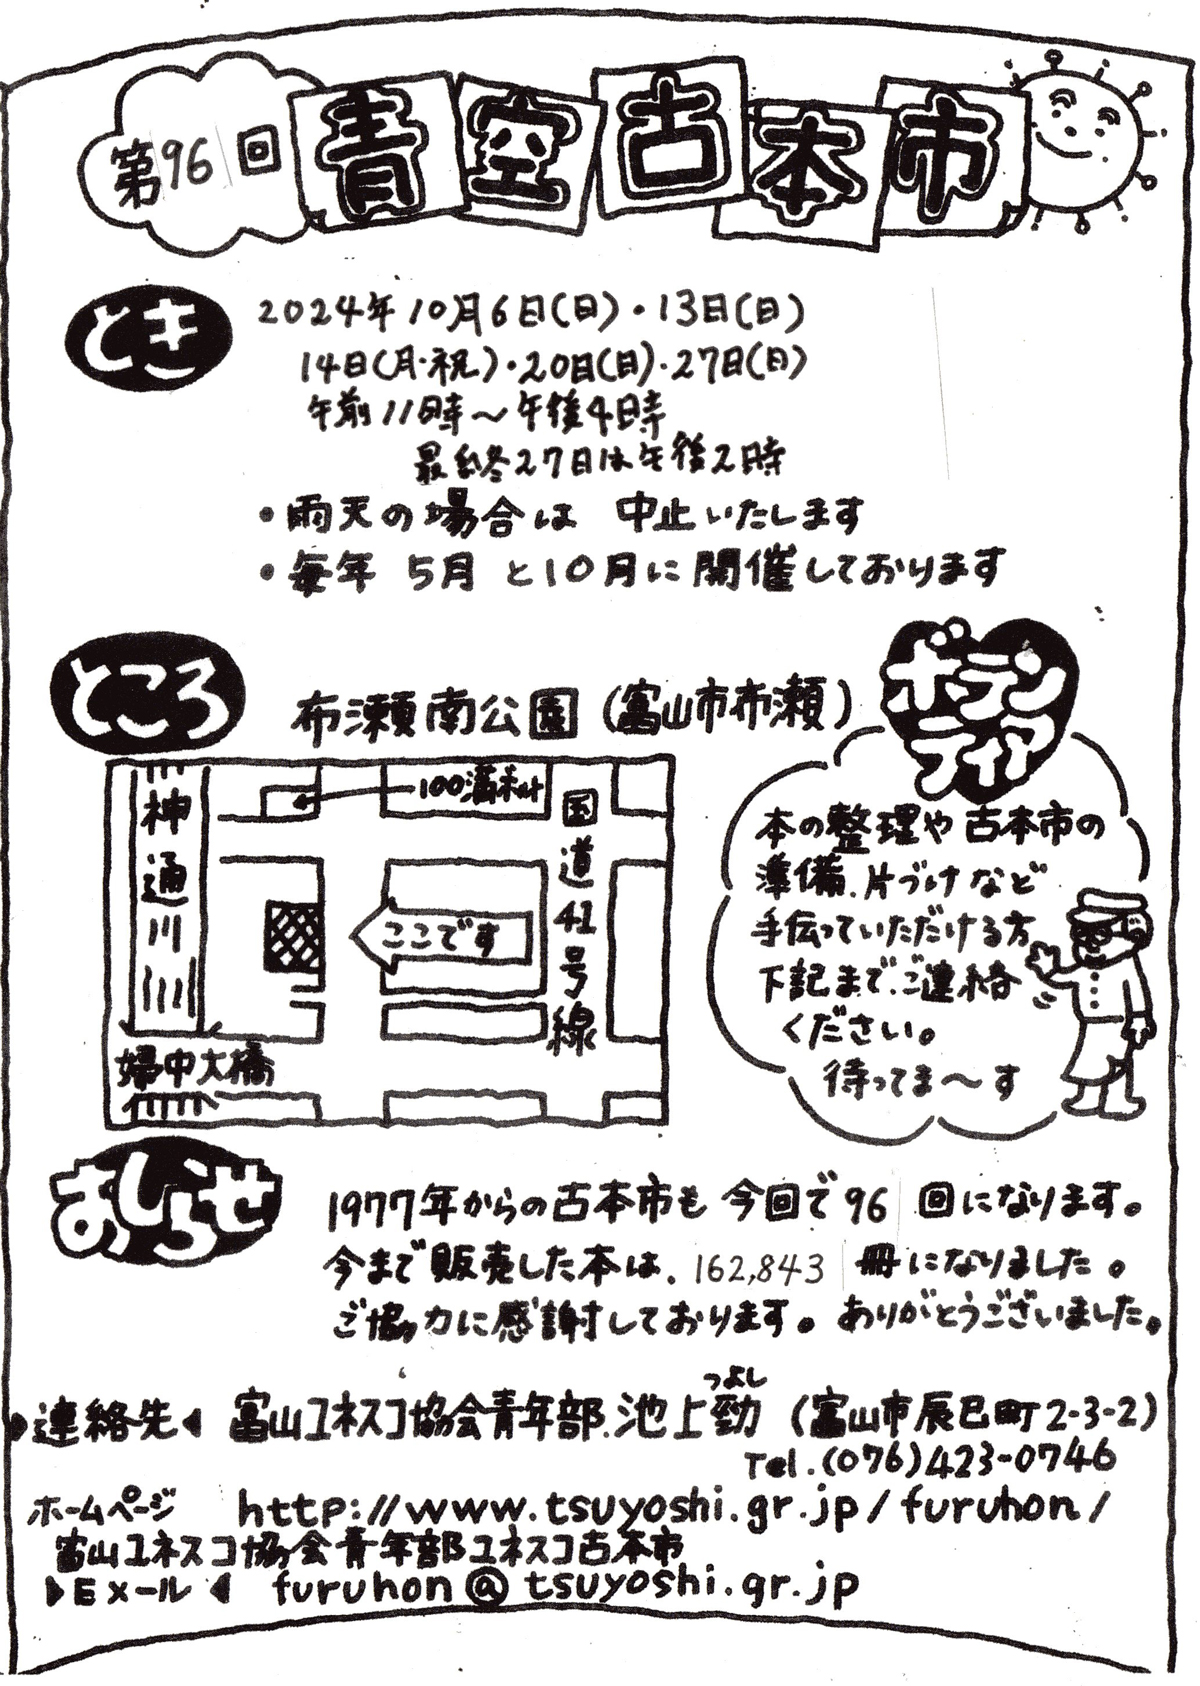 第96回 青空古本市
とき
2024年10月6日(日)・13日(日)
14日(月・祝)・20日(日)・27日(日)
午前11時〜午後4時
最終27日は午後2時
・雨天の場合は 中止いたします
・毎年 5月と10月に開催しております
ところ
布瀬南公園(富山市布瀬)
100満ボルト
神通川
国道41号線
ここです
婦中大橋
ボランティア
本の整理や古本市の
準備、片づけなど
手伝っていただける方
下記まで、ご連絡
ください。
待ってま〜す
おしらせ
1977年からの古本市も今回で96回になります。
今まで販売した本は、162,843冊になりました。
ご協力に感謝しております。ありがとうございました。
つよし
連絡先 富山ユネスコ協会青年部、池上勁(富山市辰巳町2-3-2)
Tel.(076)423-0746
ホームページ http://www.tsuyoshi.gr.jp/furuhon/
富山ユネスコ協会青年部ユネスコ古本市
Eメール furuhon@tsuyoshi.gr.jp